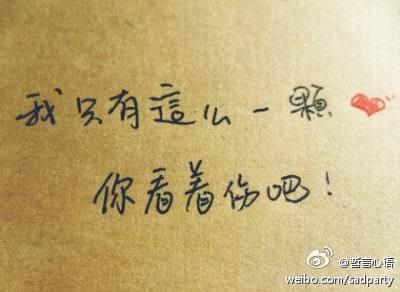 我只有這么一顆
你看着伤吧！
@哲言心语
weibo.com/sadparty